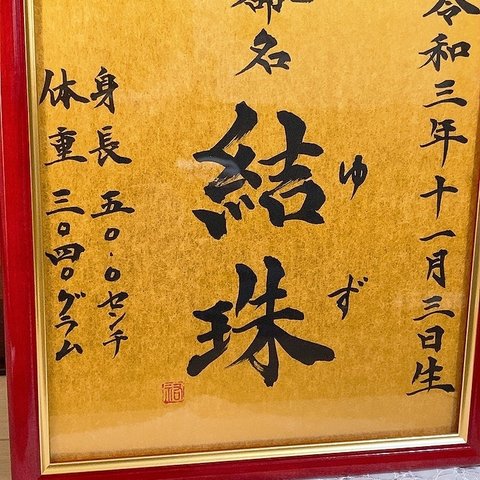 令和三年十一月三日生
命名
結珠
ゆず
身長 五〇.〇センチ
体重 三〇四〇グラム